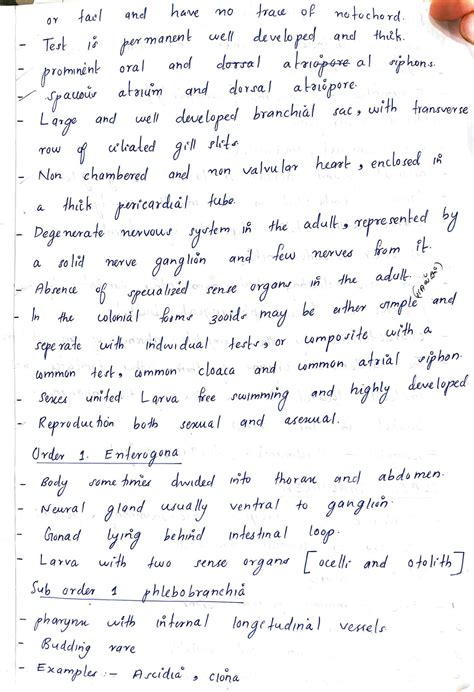 or tael and have no trace of notochord.
- Test is permanent well developed and thick.
- prominent oral and dorsal atriopore al siphons.
- Spacious atrium and dorsal atriopore.
- Large and well developed branchial sac, with transverse
row of ciliated gill slits.
- Non chambered and non valvular heart, enclosed in
a thick pericardial tube.
- Degenerate nervous system in the adult, represented by
a solid nerve ganglion and few nerves from it.
- Absence of specialized sense organs in the adult.
- In the colonial forms zooids may be either simple and
seperate with individual tests, or composite with a
common test, common cloaca and common atrial siphon.
- Sexes united Larva free swimming and highly developed
- Reproduction both sexual and asexual.
Order 1. Enterogona
- Body some times divided into thorax and abdomen.
- Neural gland usually ventral to ganglion.
- Gonad lying behind intestinal loop.
- Larva with two sense organs [ocelli and otolith]
Sub order 1 phlebobranchia
- pharynx with internal longitudinal vessels
- Budding rare
- Examples:- Ascidia, ciona